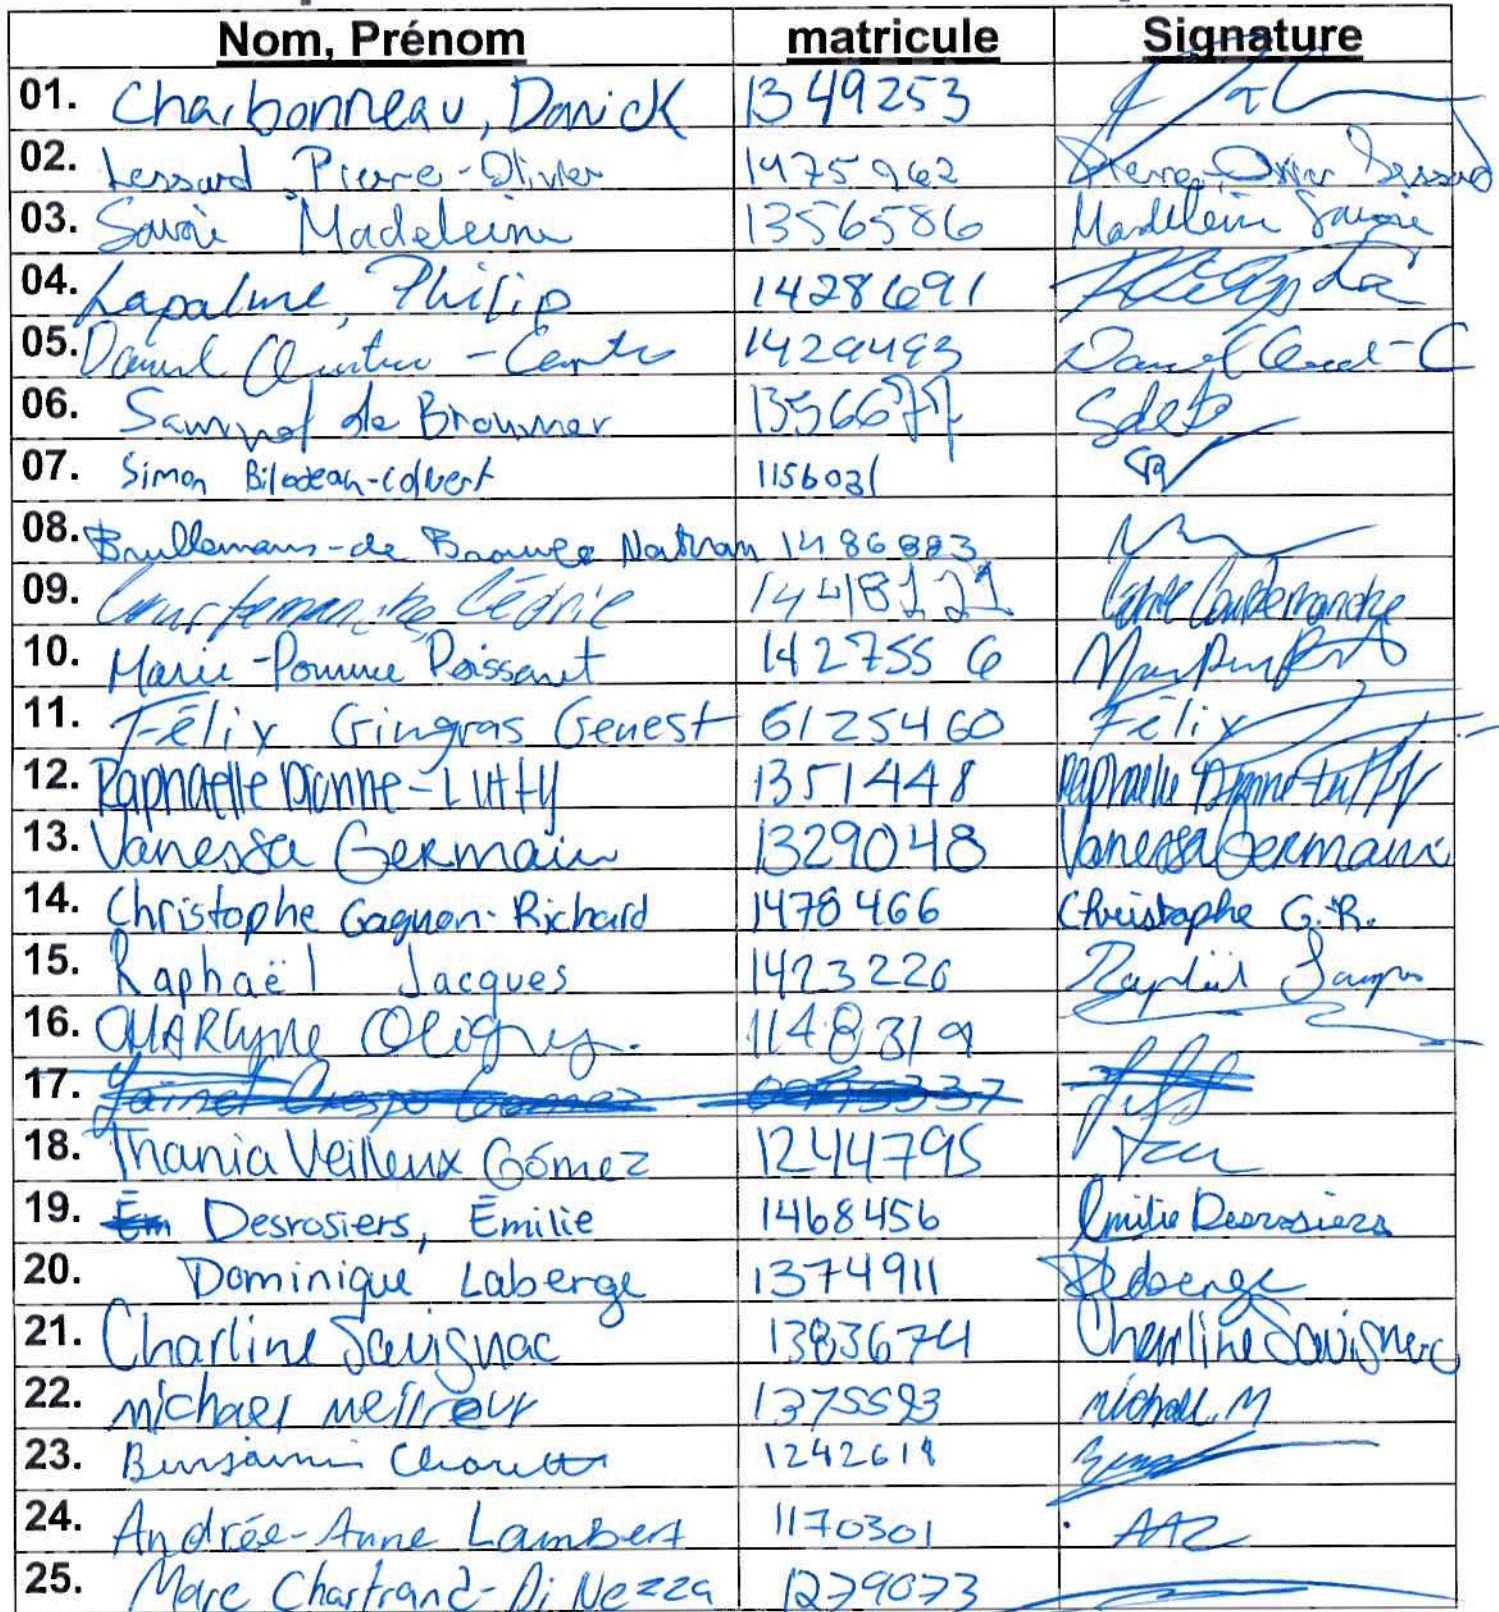 Nom, Prénom matricule Signature
01. Charbonneau, Danick 1349253
02. Lessard, Pierre-Olivier 1475962 Pierre-Olivier Lessard
03. Savoie Madeleine 1356586 Madeleine Savoie
04. Lapalme, Philip 1428691
05. Daniel 1429493 Daniel
06. Samuel de Brouwer 1356677 SdeB
07. Simon Bilodeau-Colbert 1156031
08. Brullemans-de Brouwer Nathan 1486883
09. Courtemanche, Cédric 14418121 Courtemanche
10. Marie-Pomme Poissant 1427556
11. Félix Gingras Genest 6125460 Félix
12. Raphaelle Dionne-Lutfy 1351448 Raphaelle Dionne-Lutfy
13. Vanessa Germain 1329048 Vanessa Germain
14. Christophe Gagnon-Richard 1478466 Christophe G.-R.
15. Raphaël Jacques 1423226 Raphaël Jacques
16. CHARLyne Oligny. 1148319
17.
18. Thania Veilleux Gómez 1244795
19. Em Desrosiers, Émilie 1468456 Émilie Desrosiers
20. Dominique Laberge 1374911 DLaberge
21. Charline Savignac 1383674 Charline Savignac
22. michael 1375593 michael.M
23. Benjamin Charette 1242618
24. Andrée-Anne Lambert 1170301 AAL
25. Marc Chartrand-Di Nezza 1279073